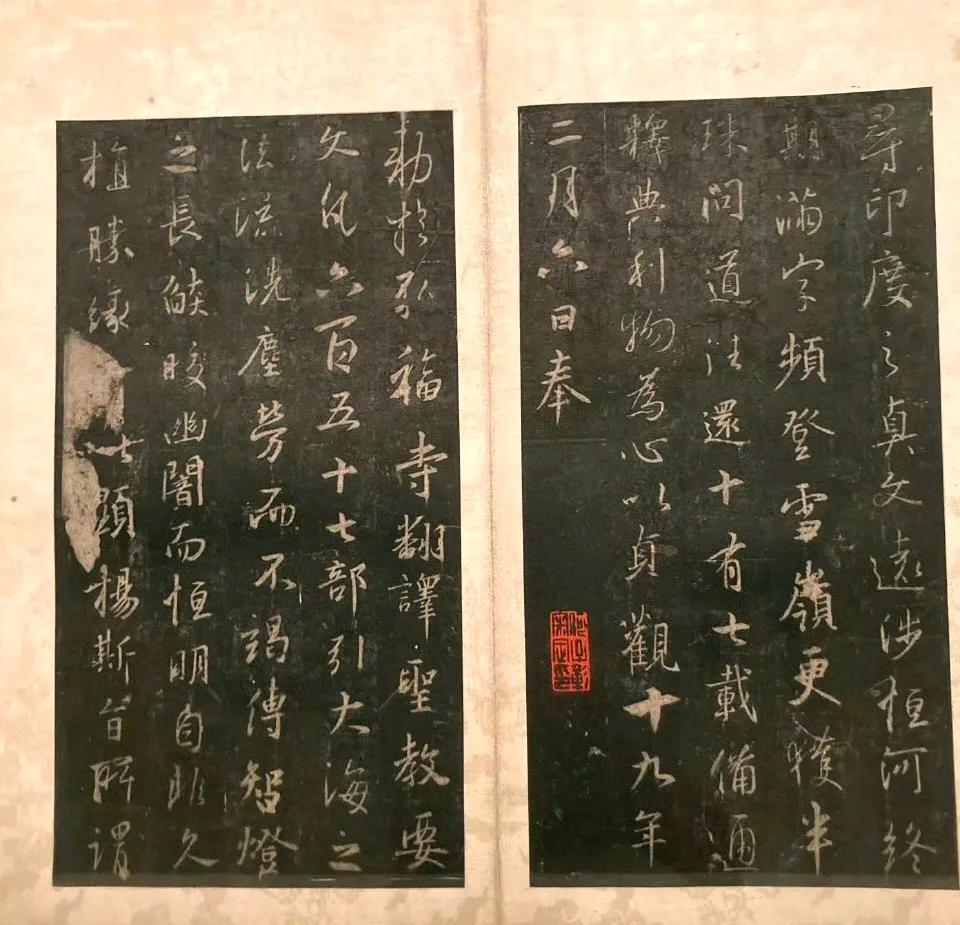 尋印度之真文遠涉恒河終
期滿字頻登雪嶺更獲半
珠問道法還十有七載備通
釋典利物為心以貞觀十九年
二月六日奉
勅於弘福寺翻譯聖教要
文凡六百五十七部引大海之
法流洗塵勞而不竭傳智燈
之長燄皎幽闇而恒明自非久
植勝緣以顯揚斯旨所謂